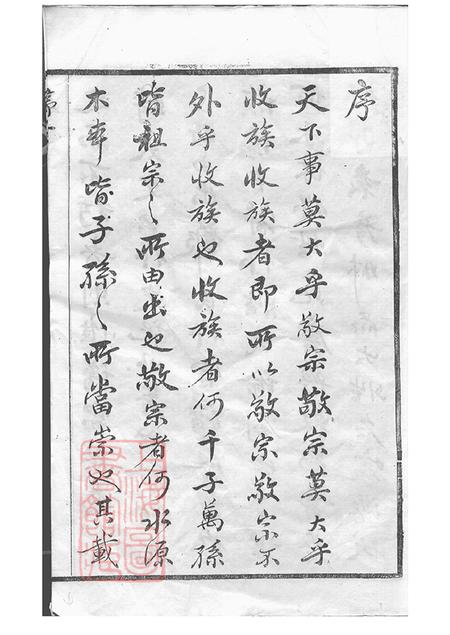 序
天下事莫大乎敬宗敬宗莫大乎
收族收族者即所以敬宗敬宗不
外乎收族也收族者何千子萬孫
皆祖宗之所由出也敬宗者何水源
木本皆子孫之所當崇也其載
序